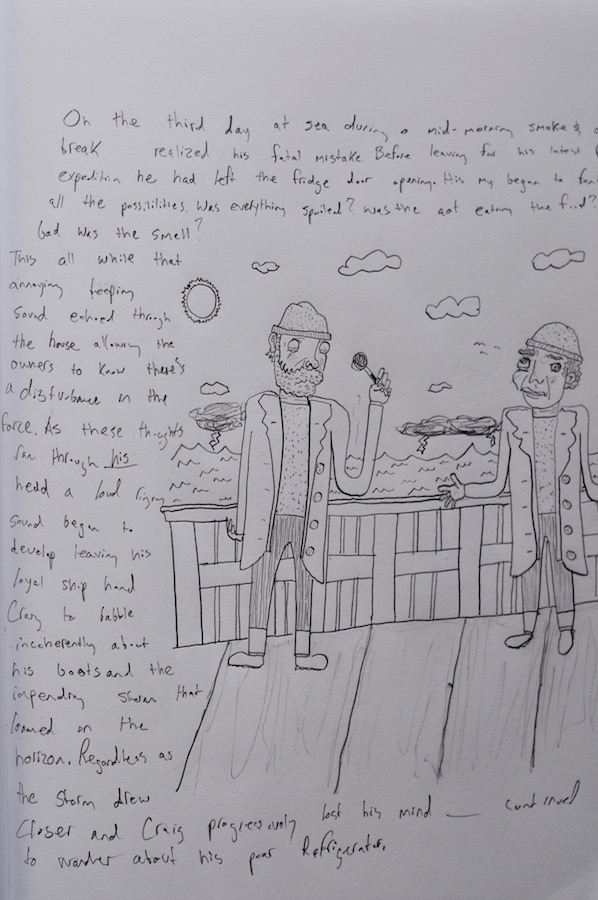 On the third day at sea during a mid-morning smoke &
break realized his fatal mistake. Before leaving for his latest
expedition he had left the fridge door opening. His my began to
all the possibilities. Was everything spoiled? was the eating the food?
bad was the smell?
This all while that
annoying beeping
sound echoed through
the house allowing the
owners to know there's
a disturbance in the
force. As these thoughts
ran through his
head a loud
sound began to
develop leaving his
loyal ship hand
Craig to babble
incoherently about
his boots and the
impending storm that
loomed on the
horizon. Regardless as
the storm drew
closer and Craig progressively lost his mind — continued
to wander about his poor Refrigerator.